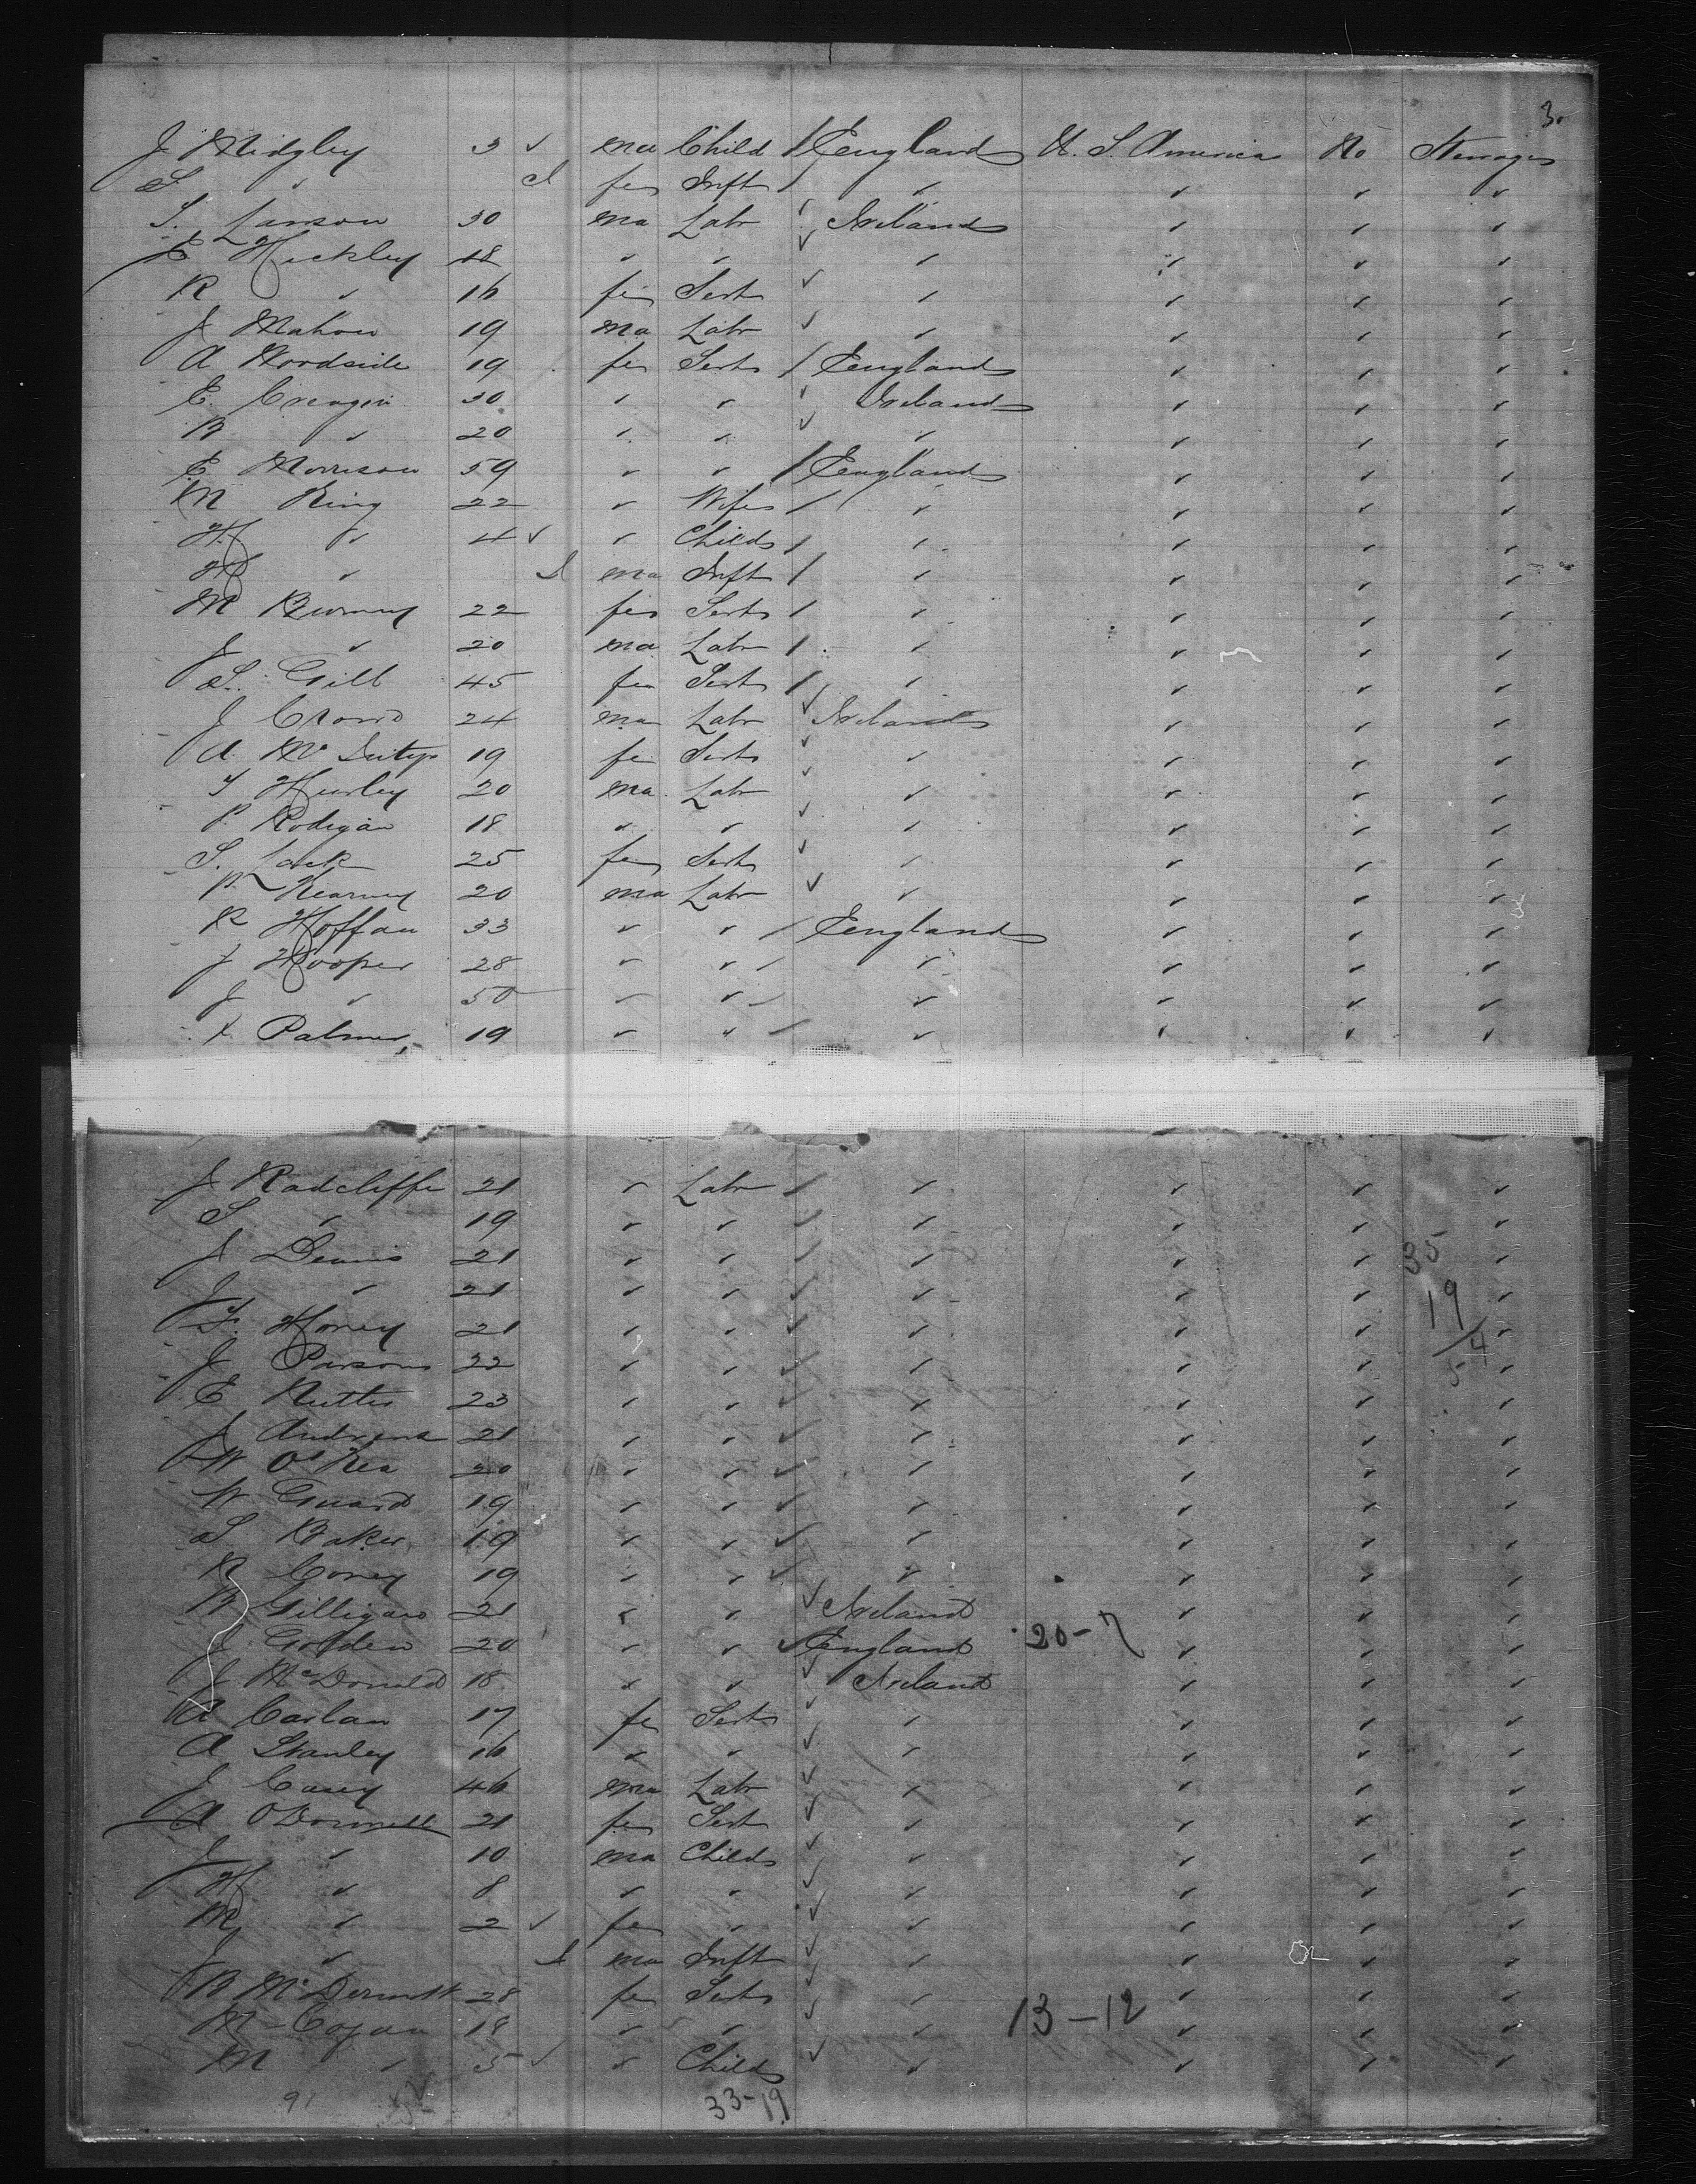 3.
J Midgley 3 ✓ ma Child / England U. S. America No Steerage
S " I fe Inft / " " " "
S. Lawson 30 ma Labr ✓ Ireland " " "
E Hickley 18 " " ✓ " " " "
R " 16 fe Sert ✓ " " " "
J Mahon 19 ma Labr ✓ " " " "
A Woodside 19 fe Sert / England " " "
E. 30 " " ✓ Ireland " " "
B " 20 " " ✓ " " " "
E. Morrison 59 " " / England " " "
M King 22 " Wife / " " " "
H " 4 ✓ " Child / " " " "
H " I ma Inft / " " " "
M 22 fe Sert / " " " "
J " 20 ma Labr / " " " "
S. Gill 45 fe Sert / " " " "
J 24 ma Labr ✓ Ireland " " "
A. Mc 19 fe Sert ✓ " " " "
T Hurley 20 ma Labr ✓ " " " "
P. Rodigan 18 " " ✓ " " " "
S. Lack 25 fe Sert ✓ " " " "
P. Kearney 20 ma Labr ✓ " " " "
R Hoffan 33 " " / England " " "
J Hooper 28 " " / " " " "
J " 50 " " / " " " "
J Palmer 19 " " / " " " "
J Radcliffe 21 " Labr / " " " "
S " 19 " " / " " " "
J Dennis 21 " " / " " " " 35
J " 21 " " / " " " " 19
F. Honey 21 " " / " " " "
J Parsons 22 " " / " " " " 54
E 23 " " / " " " "
J Andrews 21 " " / " " " "
W O'Rea 20 " " / " " " "
W Guard 19 " " / " " " "
S Baker 19 " " / " " " "
R Coney 19 " " / " " " "
B Gilligan 21 " " ✓ Ireland " " "
J Golden 20 " " / England 20-7 " " "
J McDonald 18 " " ✓ Ireland " " "
A Carlan 17 fe Sert ✓ " " " "
A Stanley 16 " " ✓ " " " "
J Casey 46 ma Labr ✓ " " " "
A O'Donnell 21 fe Sert ✓ " " " "
J " 10 ma Child ✓ " " " "
H " 8 " " ✓ " " " "
M " 2 ✓ fe " ✓ " " " "
J " I ma Inft ✓ " " " "
B McDermott 28 fe Sert ✓ " " " "
M Cogan 18 " " ✓ " 13-12 " " "
M " 5 ✓ " Child ✓ " " " "
91 33-19